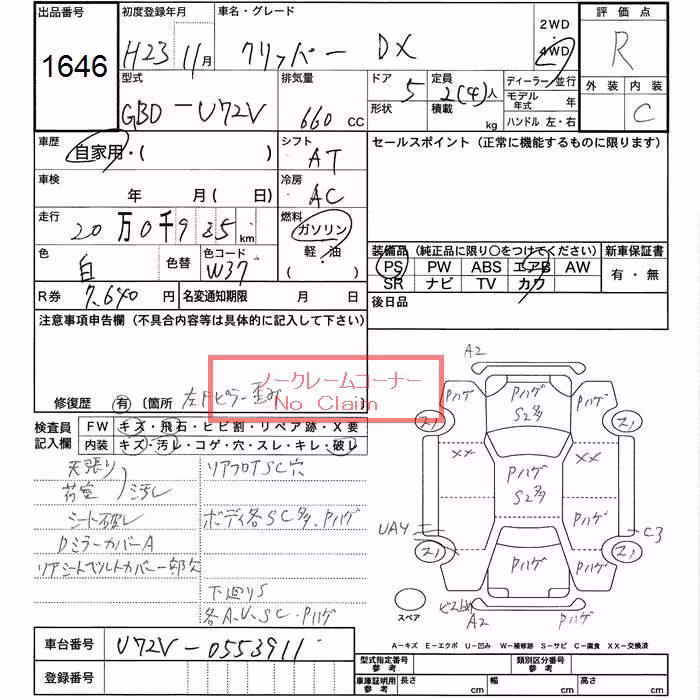 出品番号 初度登録年月 車名・グレード 2WD 評価点
1646 H23 11月 クリッパー DX 4WD R
外装 内装
C
型式 排気量 ドア 定員 ディーラー・並行
GBD-U72V 660 CC 5 2(4)人 モデル年式 年
形状 積載 kg ハンドル 左・右
車歴 自家用・( ) シフト AT セールスポイント (正常に機能するものに限ります)
車検 年 月(日) 冷房 AC
走行 20万0千935km 燃料 ガソリン
軽・油
( )
色 白 色替 色コード W37
装備品(純正品に限り〇をつけてください) 新車保証書
PS PW ABS エアB AW 有・無
SR ナビ TV カワ
R券 7,640円 名変通知期限 月 日 後日品
注意事項申告欄(不具合内容等は具体的に記入して下さい)
ノークレームコーナー
No Claim
修復歴 有 〔箇所 左Fピラー歪み
検査員記入欄 FW キズ・飛石・ヒビ割・リペア跡・X要
内装 キズ・汚レ・コゲ・穴・スレ・キレ・破レ
天張り リアフロアSC穴
荷室 汚し
シート破レ ボディ各SC多々.Pハゲ
DミラーカバーA
リアシートベルトカバー一部欠
下廻りS
各A,U,SC・Pハゲ
A2
Pハゲ Pハゲ Pハゲ
S2多々
XX XX
Pハゲ
S2多々
Pハゲ
UA4 C3
Pハゲ Pハゲ Pハゲ
スペア ビス止め A2 Pハゲ
車台番号 U72V-0553911
登録番号
A－キズ E－エクボ U－凹み W－補修跡 S－サビ C－腐食 XX－交換済
型式指定番号 参考 類別区分番号 参考
車庫証明用 参考 長さ cm 幅 cm 高さ cm